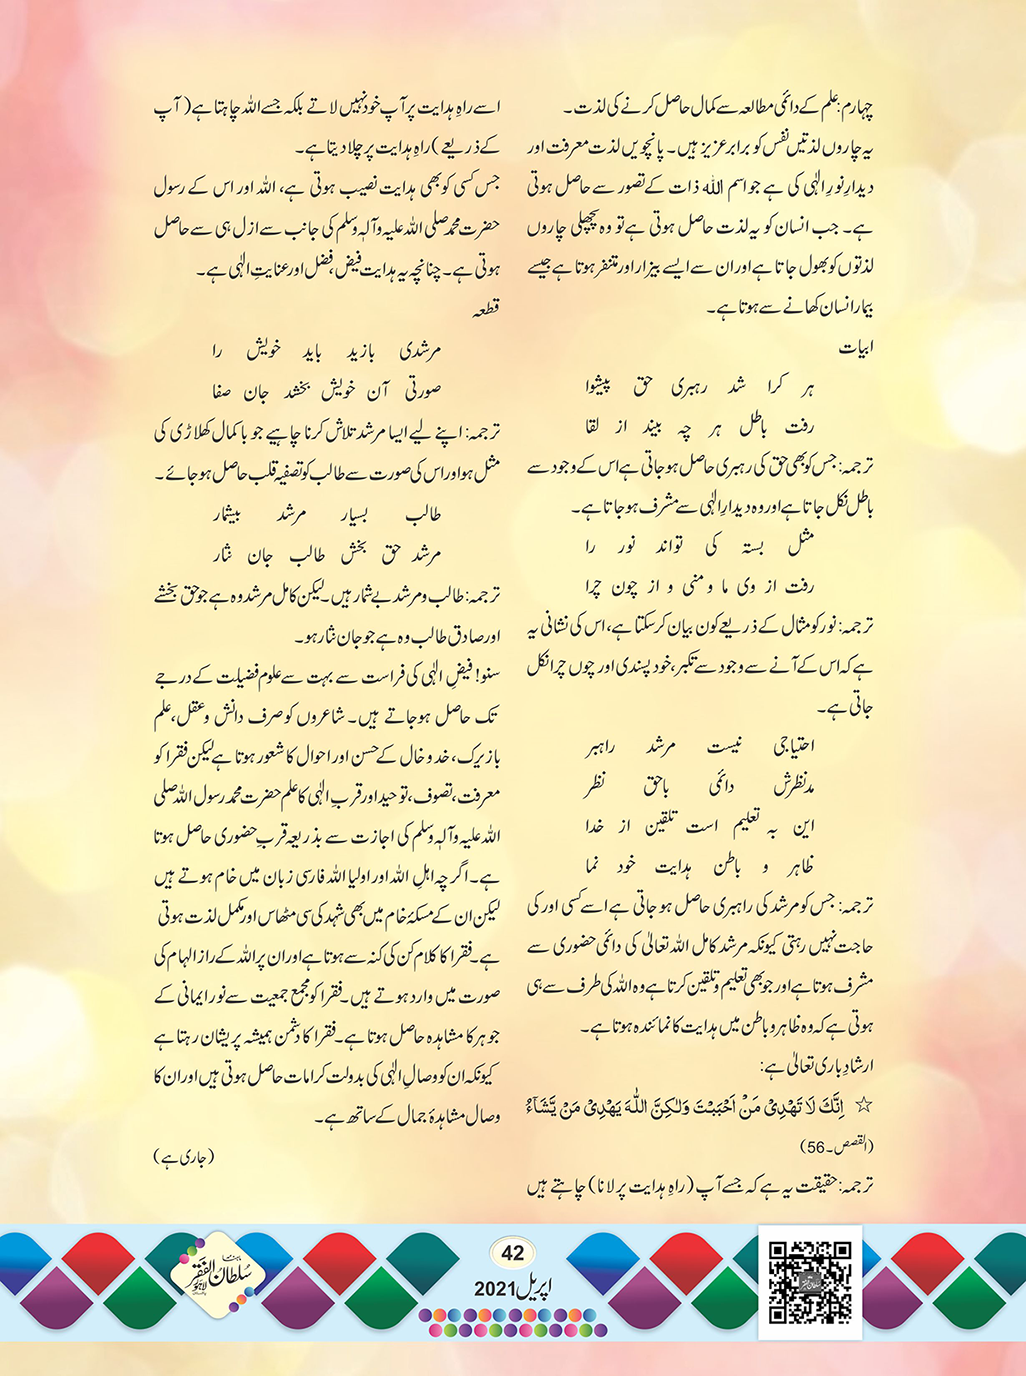 چہارم: علم کے دائمی مطالعہ سے کمال حاصل کرنے کی لذت۔
یہ چاروں لذتیں نفس کو برابر عزیز ہیں۔ پانچویں لذت معرفت اور
دیدارِ نورِ الٰہی کی ہے جو اسم اللہ ذات کے تصور سے حاصل ہوتی
ہے۔ جب انسان کو یہ لذت حاصل ہوتی ہے تو وہ پچھلی چاروں
لذتوں کو بھول جاتا ہے اور ان سے ایسے بیزار اور متنفر ہوتا ہے جیسے
بیمار انسان کھانے سے ہوتا ہے۔
ابیات
ہر کرا شد رہبری حق پیشوا
رفت باطل ہر چہ بیند از لقا
ترجمہ: جس کو بھی حق کی رہبری حاصل ہو جاتی ہے اس کے وجود سے
باطل نکل جاتا ہے اور وہ دیدارِ الٰہی سے مشرف ہو جاتا ہے۔
مثل بستہ کی تواند نور را
رفت از وی ما و منی و از چون چرا
ترجمہ: نور کو مثال کے ذریعے کون بیان کر سکتا ہے، اس کی نشانی یہ
ہے کہ اس کے آنے سے وجود سے تکبر، خود پسندی اور چوں چرا نکل
جاتی ہے۔
احتیاجی نیست مرشد راہبر
مدنظرش دائمی باحق نظر
این بہ تعلیم است تلقین از خدا
ظاہر و باطن ہدایت خود نما
ترجمہ: جس کو مرشد کی راہبری حاصل ہو جاتی ہے اسے کسی اور کی
حاجت نہیں رہتی کیونکہ مرشد کامل اللہ تعالیٰ کی دائمی حضوری سے
مشرف ہوتا ہے اور جو بھی تعلیم و تلقین کرتا ہے وہ اللہ کی طرف سے ہی
ہوتی ہے کہ وہ ظاہر و باطن میں ہدایت کا نمائندہ ہوتا ہے۔
ارشادِ باری تعالیٰ ہے:
☆ اِنَّکَ لَا تَھْدِیْ مَنْ اَحْبَبْتَ وَلٰکِنَّ اللّٰہَ یَھْدِیْ مَنْ یَّشَآءُ
(القصص۔56)
ترجمہ: حقیقت یہ ہے کہ جسے آپ (راہِ ہدایت پر لانا) چاہتے ہیں
اسے راہِ ہدایت پر آپ خود نہیں لاتے بلکہ جسے اللہ چاہتا ہے (آپ
کے ذریعے) راہِ ہدایت پر چلا دیتا ہے۔
جس کسی کو بھی ہدایت نصیب ہوتی ہے، اللہ اور اس کے رسول
حضرت محمد صلی اللہ علیہ وآلہٖ وسلم کی جانب سے ازل ہی سے حاصل
ہوتی ہے۔ چنانچہ یہ ہدایت فیض، فضل اور عنایتِ الٰہی ہے۔
قطعہ
مرشدی بازید باید خویش را
صورتی آن خویش بخشد جان صفا
ترجمہ: اپنے لیے ایسا مرشد تلاش کرنا چاہیے جو باکمال کھلاڑی کی
مثل ہو اور اس کی صورت سے طالب کو تصفیہ قلب حاصل ہو جائے۔
طالب بسیار مرشد بیشمار
مرشد حق بخش طالب جان نثار
ترجمہ: طالب و مرشد بے شمار ہیں۔ لیکن کامل مرشد وہ ہے جو حق بخشے
اور صادق طالب وہ ہے جو جان نثار ہو۔
سنو! فیضِ الٰہی کی فراست سے بہت سے علوم فضیلت کے درجے
تک حاصل ہو جاتے ہیں۔ شاعروں کو صرف دانش و عقل، علم
باز یرک، خد و خال کے حسن اور احوال کا شعور ہوتا ہے لیکن فقرا کو
معرفت، تصوف، توحید اور قربِ الٰہی کا علم حضرت محمد رسول اللہ صلی
اللہ علیہ وآلہٖ وسلم کی اجازت سے بذریعہ قربِ حضوری حاصل ہوتا
ہے۔ اگرچہ اہل اللہ اور اولیا اللہ فارسی زبان میں خام ہوتے ہیں
لیکن ان کے مسکۂ خام میں بھی شہد کی سی مٹھاس اور مکمل لذت ہوتی
ہے۔ فقرا کا کلام کن کی کنہ سے ہوتا ہے اور ان پر اللہ کے راز الہام کی
صورت میں وارد ہوتے ہیں۔ فقرا کو مجمع جمعیت سے نورِ ایمانی کے
جوہر کا مشاہدہ حاصل ہوتا ہے۔ فقرا کا دشمن ہمیشہ پریشان رہتا ہے
کیونکہ ان کو وصالِ الٰہی کی بدولت کرامات حاصل ہوتی ہیں اور ان کا
وصال مشاہدۂ جمال کے ساتھ ہے۔
(جاری ہے)
ماہنامہ
سُلطان الفَقر
لاہور
42
اپریل 2021